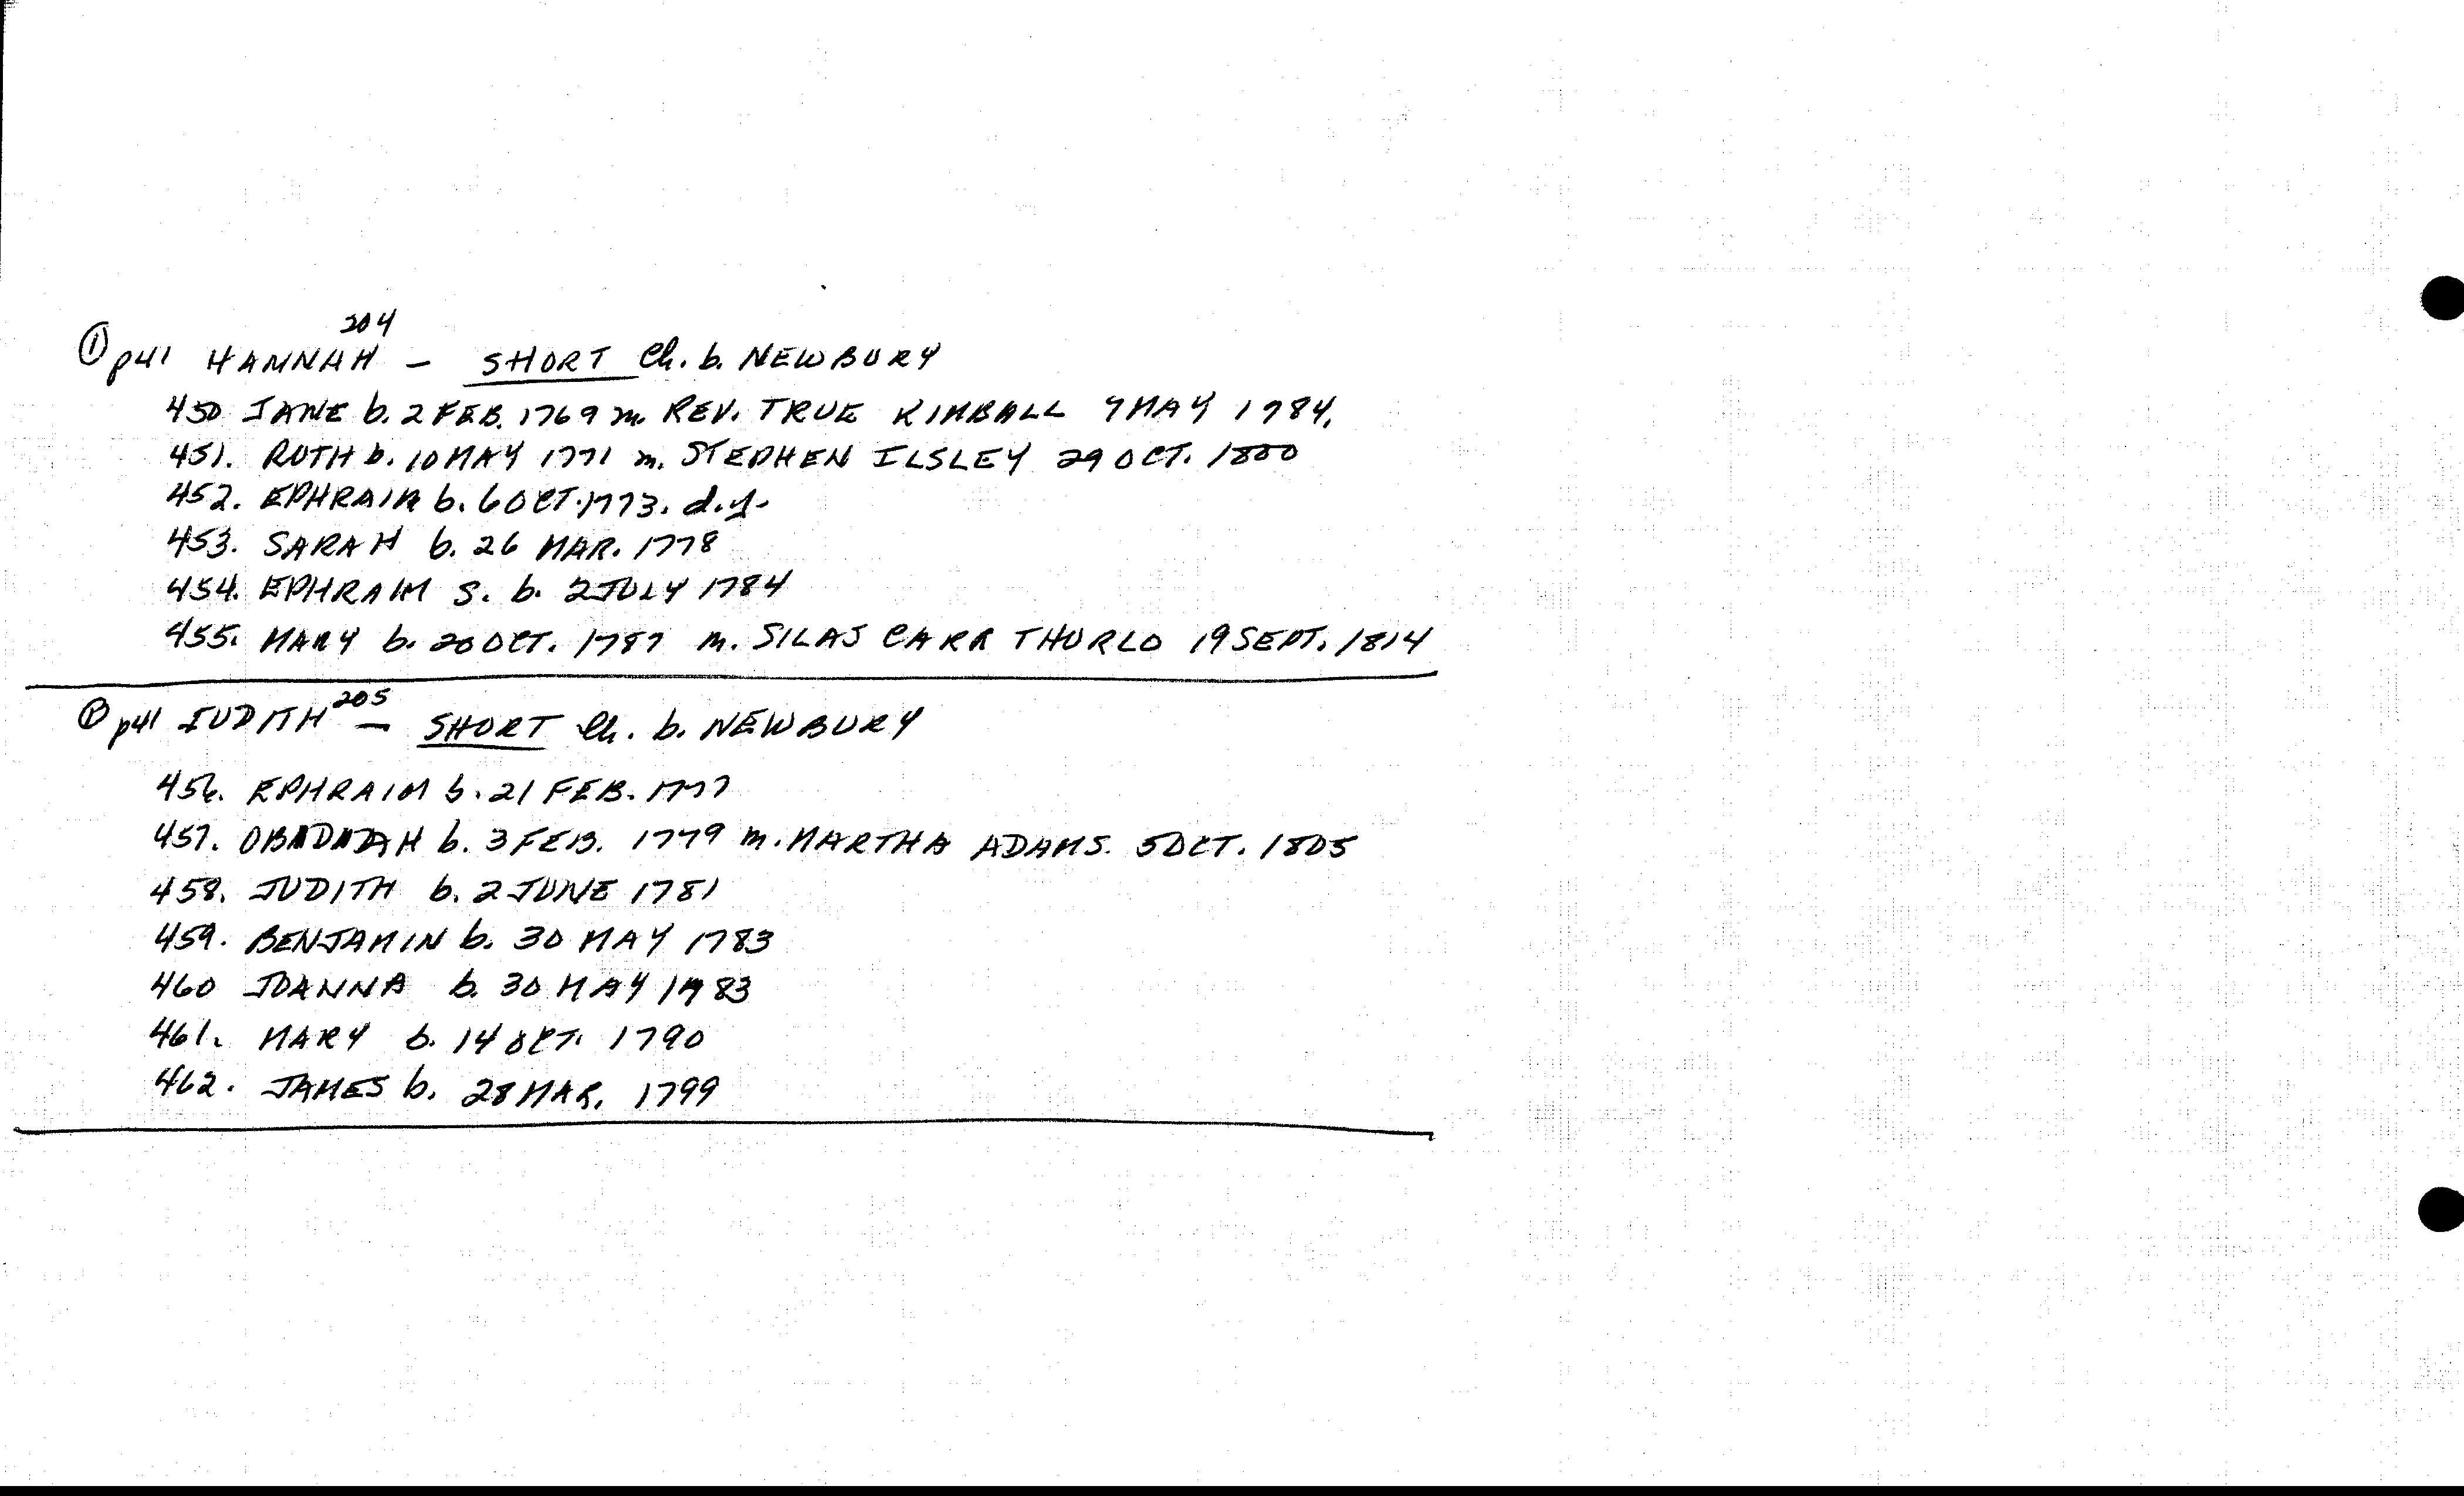 204
① p41 HANNAH — SHORT Ch. b. NEWBURY
450 JANE b. 2 FEB. 1769 m. REV. TRUE KIMBALL MAY 1784.
451. RUTH b. 10 MAY 1771 m. STEPHEN ILSLEY 29 OCT. 1800
452. EPHRAIM b. 6 OCT. 1773. d.y.
453. SARAH b. 26 MAR. 1778
454. EPHRAIM S. b. 2 JULY 1784
455. MARY b. 20 OCT. 1787 m. SILAS CARR THURLO 19 SEPT. 1814
205
p41 JUDITH — SHORT Ch. b. NEWBURY
456. EPHRAIM b. 21 FEB. 1777
457. OBADIAH b. 3 FEB. 1779 m. MARTHA ADAMS. 5 OCT. 1805
458. JUDITH b. 2 JUNE 1781
459. BENJAMIN b. 30 MAY 1783
460 JOANNA b. 30 MAY 1783
461. MARY b. 14 OCT. 1790
462. JAMES b. 28 MAR. 1799